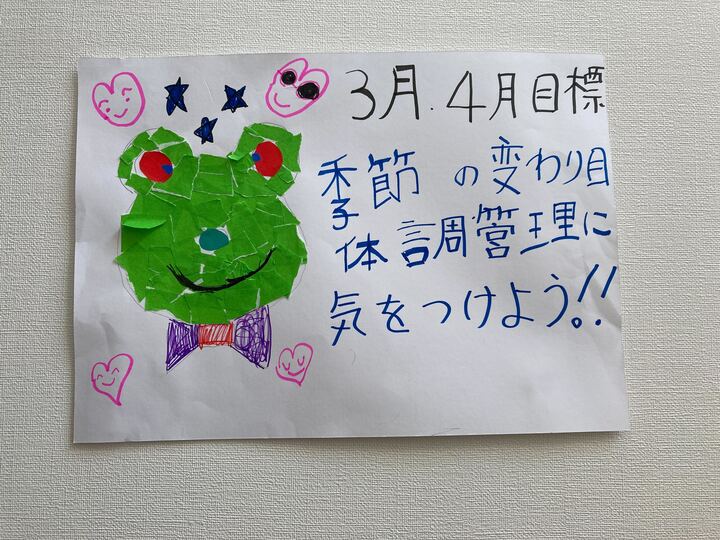 3月.4月目標
季節の変わり目
体調管理に
気をつけよう!!